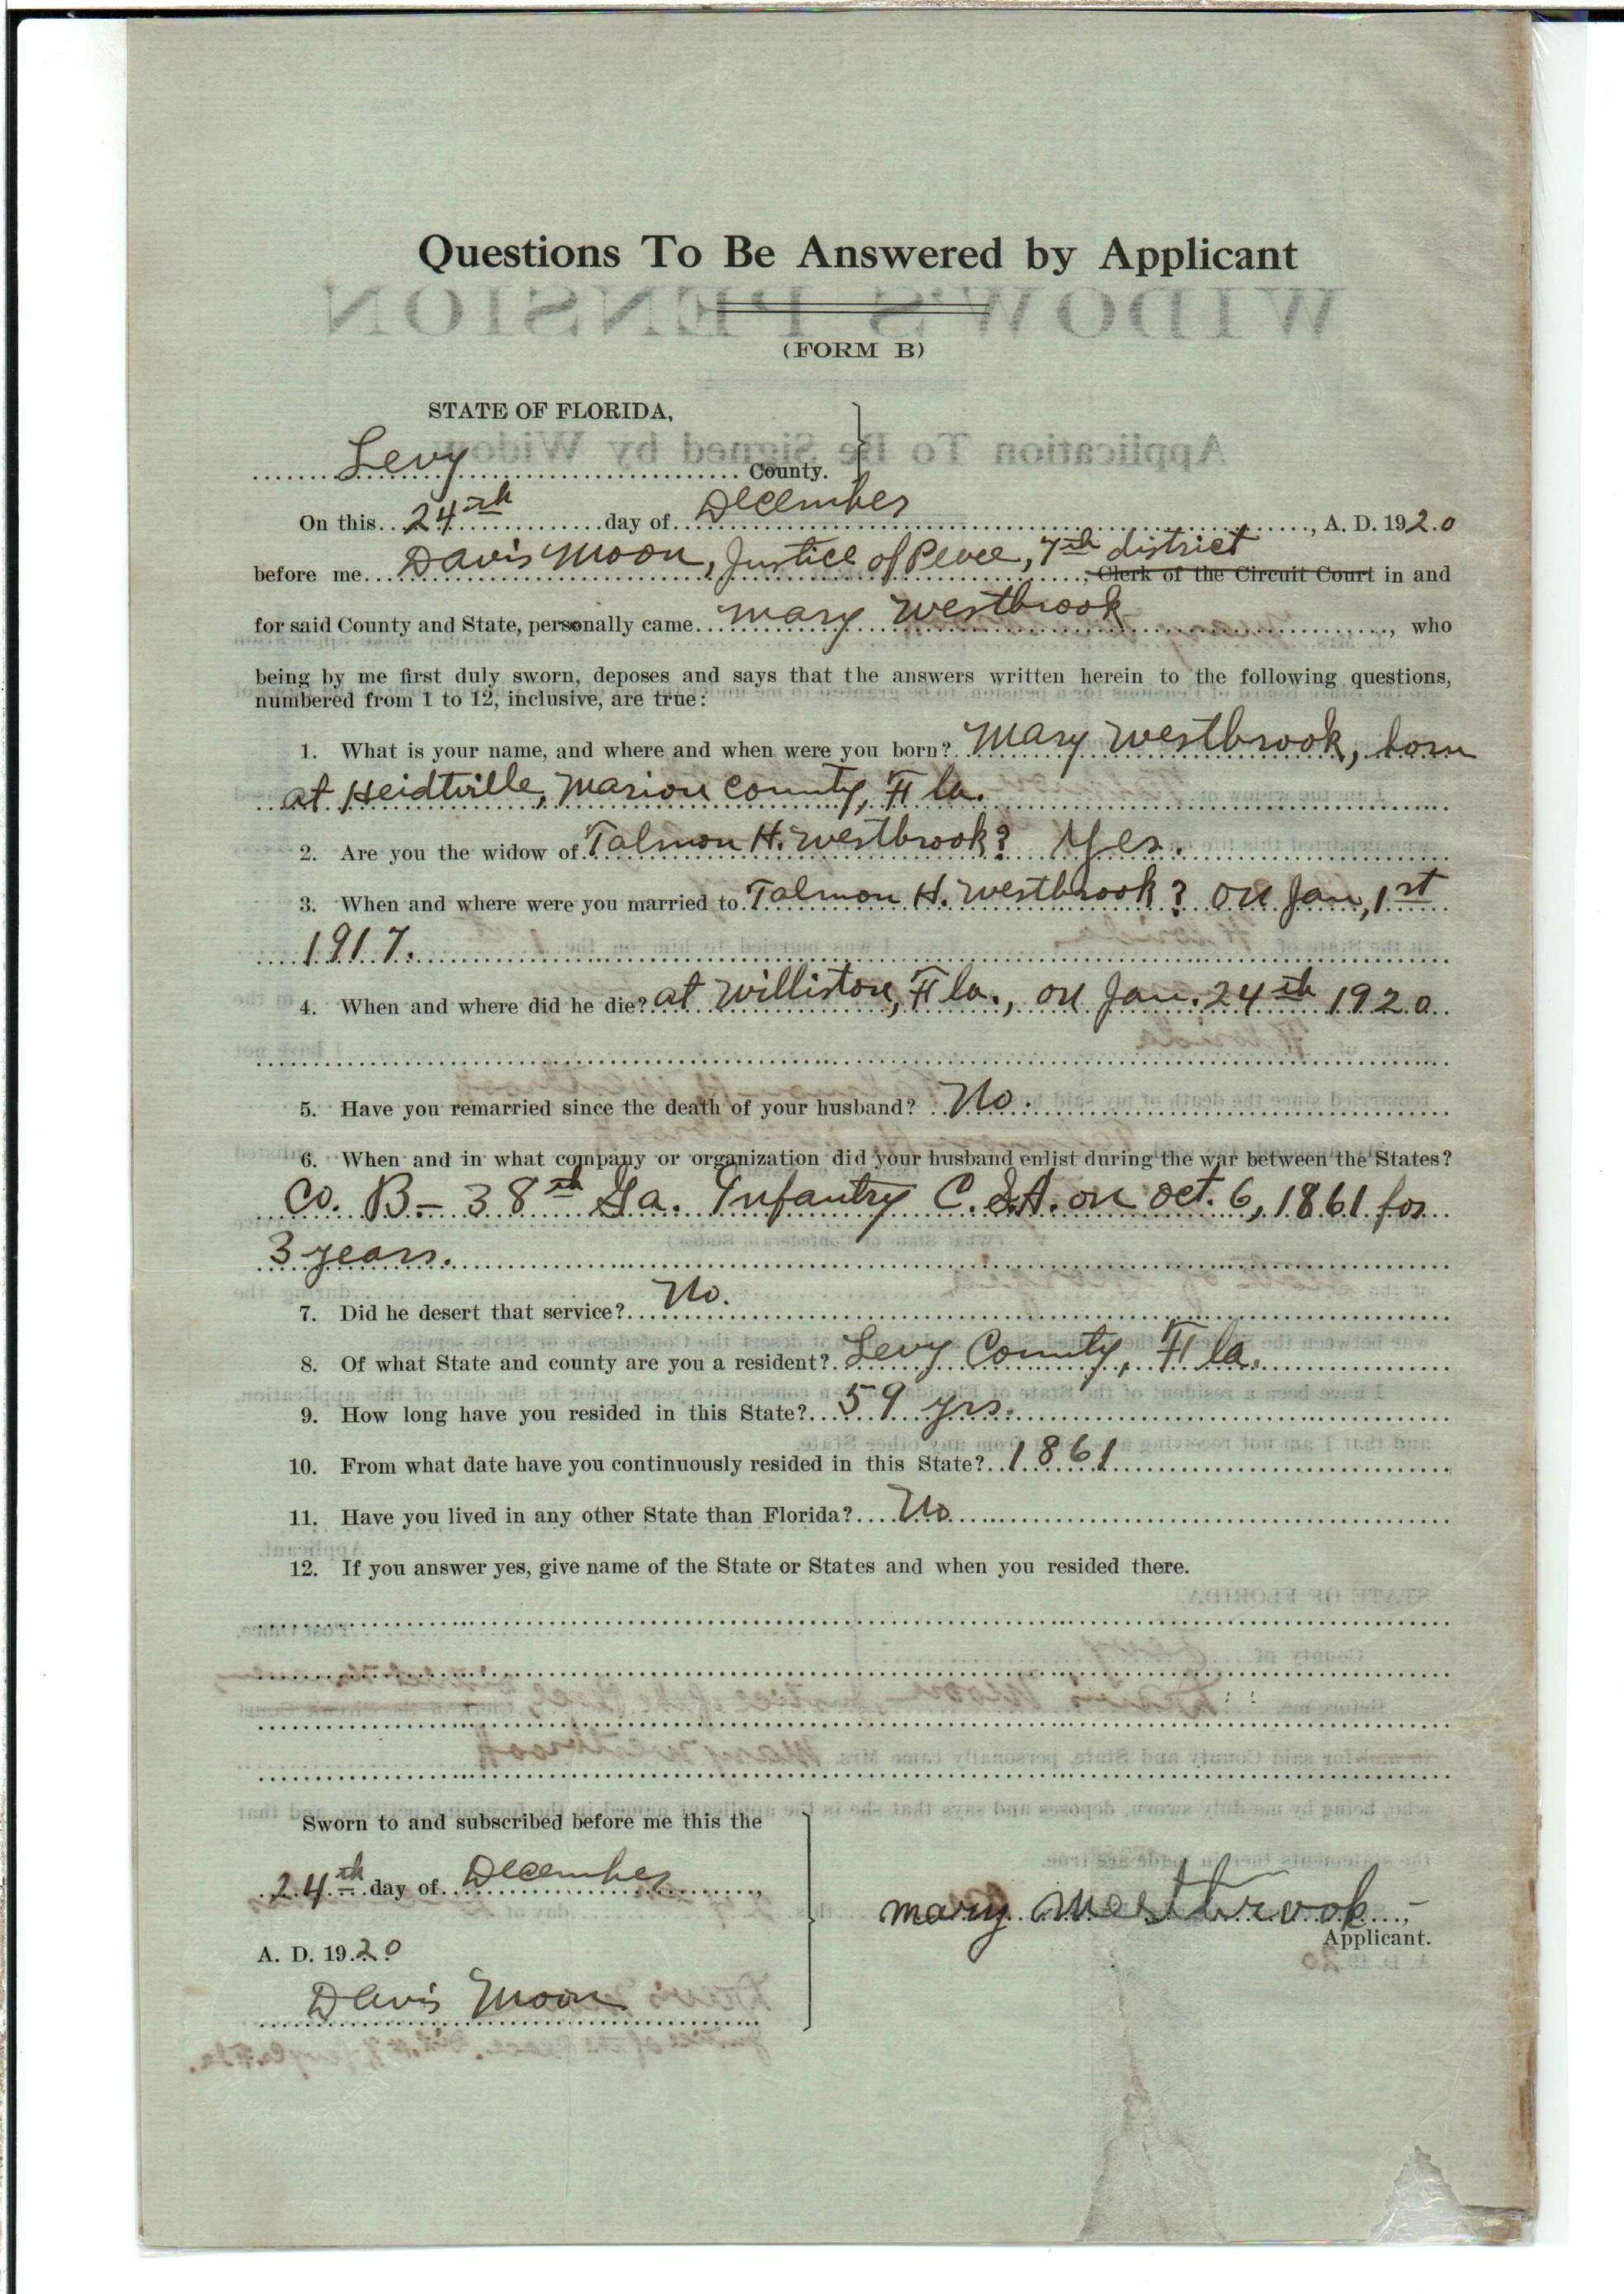 Questions To Be Answered by Applicant
WIDOW'S PENSION
(FORM B)
STATE OF FLORIDA,
Application To Be Signed by Widow
Levy County.
On this 24th day of December, A. D. 1920
before me Davis Moon, Justice of Peace, 7th district, Clerk of the Circuit Court in and
for said County and State, personally came Mary Westbrook, who
being by me first duly sworn, deposes and says that the answers written herein to the following questions,
numbered from 1 to 12, inclusive, are true:
1. What is your name, and where and when were you born? Mary Westbrook, born
at Heidtville, Marion County, Fla.
2. Are you the widow of Talmon H. Westbrook? Yes.
3. When and where were you married to Talmon H. Westbrook? On Jan, 1st
1917.
4. When and where did he die? at Williston, Fla., on Jan. 24th 1920
5. Have you remarried since the death of your husband? No.
6. When and in what company or organization did your husband enlist during the war between the States?
Co. B - 38th Ga. Infantry C.S.A. on Oct. 6, 1861 for
3 years.
7. Did he desert that service? No.
8. Of what State and county are you a resident? Levy County, Fla.
9. How long have you resided in this State? 59 yrs.
10. From what date have you continuously resided in this State? 1861
11. Have you lived in any other State than Florida? No
12. If you answer yes, give name of the State or States and when you resided there.
Sworn to and subscribed before me this the
24th day of December,
A. D. 1920
Davis Moon
Mary Westbrook
Applicant.